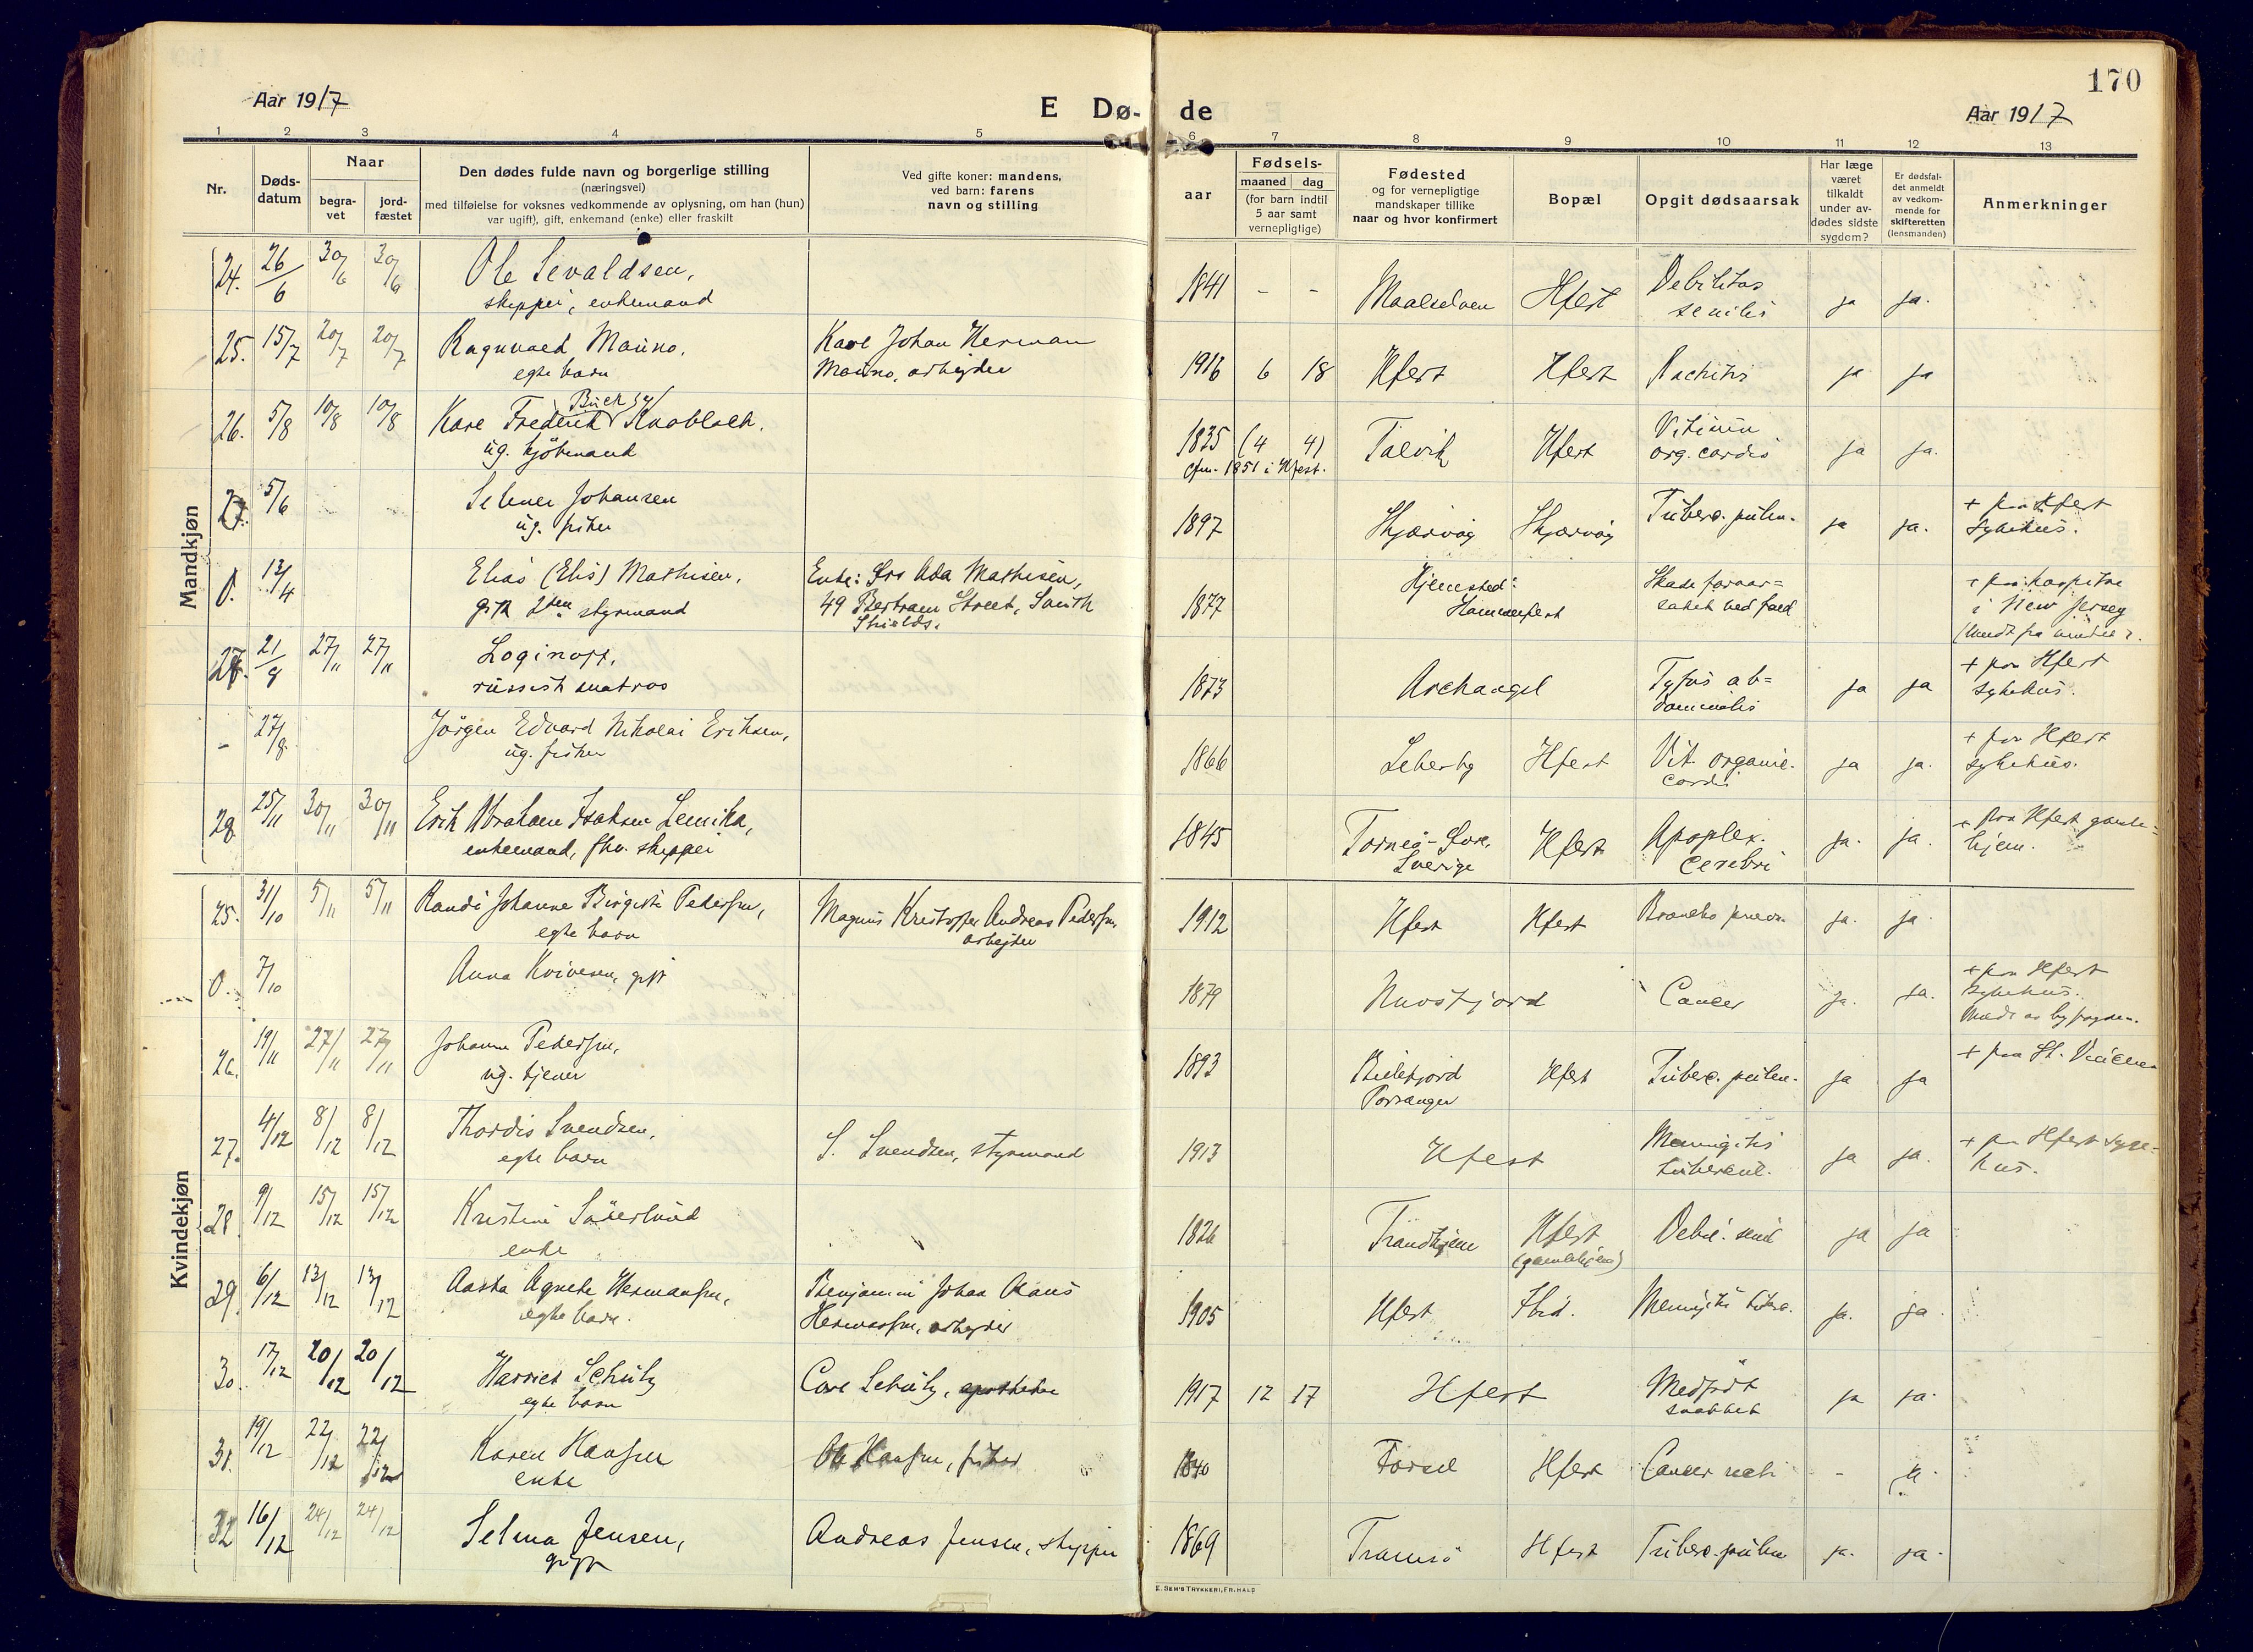 170
Aar 1917
E Dø-
de
Aar 1917
1 2 3 4 5 6 7 8 9 10 11 12 13
Nr.
Døds-
datum
Naar
begra-
vet
jord-
fæstet
Den dødes fulde navn og borgerlige stilling
(næringsvei)
med tilføielse for voksnes vedkommende av oplysning, om han (hun)
var ugift), gift, enkemand (enke) eller fraskilt
Ved gifte koner: mandens,
ved barn: farens
navn og stilling
aar
Fødsels-
maaned dag
(for barn indtil
5 aar samt
vernepligtige)
Fødested
og for vernepligtige
mandskaper tillike
naar og hvor konfirmert
Bopæl
Opgit dødsaarsak
Har læge
været
tilkaldt
under av-
dødes sidste
sygdom?
Er dødsfal-
det anmeldt
av vedkom-
mende for
skifteretten
(lensmanden)
Anmerkninger
Mandkjøn
24. 26/6 30/6 30/6 Ole Sevaldsen, 1841 - - Maalselven Hfest Debilitas
skipper, enkemand senilis ja ja.
25. 15/7 20/7 20/7 Ragnvald Mauno, Karl Johan Herman 1916 6 18 Hfest Hfest Rachitis ja ja
egte barn Mauno, arbeider
Buck
26. 5/8 10/8 10/8 Karl Frederik Knoblock, 1835 (4 4) Talvik Hfest Vitium
ug. kjøbmand cfm. 1851 i Hfest. org. cordis ja ja.
27. 5/6 Selmer Johansen 1897 Skjærvøy Skjærvøy Tuberc. pulm. ja ja. + paa Hfest
ug. fisker sykehus.
0. 13/4 Elias (Elis) Mathisen, Enke: Frs Ada Mathisen, 1877 Hjemsted: Skade foraar=
gift 2den styrmand 49 Bertram Street, South Hammerfest saket ved fald
Shields. + paa hospital
i New Jersey
27. 21/9 27/11 27/11 Loginoff, 1873 Archangel Tyfus ab= ja ja + paa Hfest
russisk matros dominalis sykehus.
- 27/8 Jørgen Edvard Nikolai Eriksen, 1866 Lebesby Hfest Vit. organic. ja ja. + paa Hfest
ug. fisker cordis sykehus.
28. 25/11 30/11 30/11 Erik Abraham Isaksen Lemika, 1845 Torneå- Hfest Apoplex. ja. ja. + paa Hfest gamle=
enkemand, fhv. skipper Sverige cerebri hjem.
Kvindekjøn
25. 31/10 5/11 5/11 Randi Johanne Birgitte Pedersen, Magnus Kristoffer Andreas Pedersen, 1912 Hfest Hfest Broncho pneu. ja. ja.
egte barn arbeider
0. 7/10 Anna Kvivesen, gift 1879 Kvosfjord Cancer ja. ja. + paa Hfest
sykehus.
26. 19/11 27/11 27/11 Johanne Pedersen, 1893 Billefjord Hfest Tuberc. pulm. ja ja + paa St. Vincen
ug. tjener Porsanger
27. 4/12 8/12 8/12 Thordis Svendsen, S. Svendsen, styrmand 1913 Hfest Meningitis ja ja. + paa Hfest syke-
egte barn tubercul. hus.
28. 9/12 15/12 15/12 Kristine Söderlund 1826 Trondhjem Hfest Debil. senil ja ja
enke (gamlehjem)
29. 6/12 13/12 13/12 Aasta Agnete Hermansen, Benjamin Johan Claus 1905 Hfest Ibid. Meningitis tuberc. ja. ja.
egte barn. Hermansen, arbeider
30. 17/12 20/12 20/12 Harriet Schulz Carl Schulz, apotheker 1917 12 17 Hfest Medfødt ja ja.
egte barn svakhet
31. 19/12 22/12 22/12 Karen Hansen Ole Hansen, fisker 1840 Forsøl Hfest Cancer recti - ja.
enke
32 16/12 24/12 24/12 Selma Jensen, Andreas Jensen, skipper 1869 Tromsø Hfest Tuberc. pulm ja. ja.
gift
E. SEM'S TRYKKERI, FR.HALD